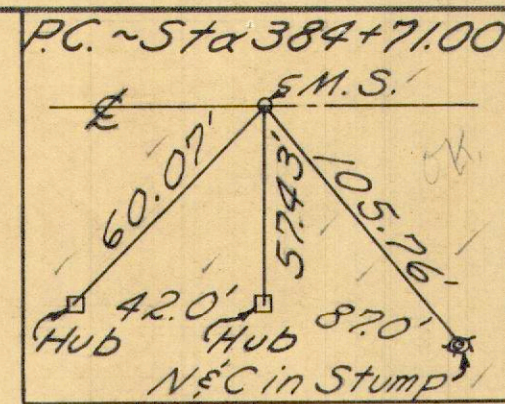 P.C. ~ Sta 384+71.00
M.S.
℄
60.07'
57.43'
105.76'
OK.
42.0'
87.0'
Hub
Hub
N & C in Stump